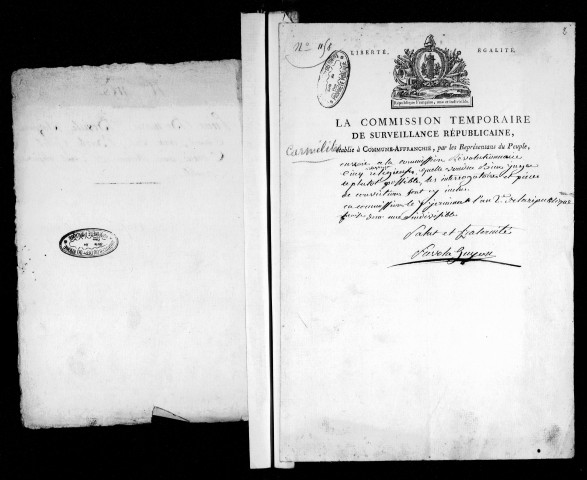 8
N° 118
LIBERTÉ,
ÉGALITÉ.
République Française, une et indivisible.
LA COMMISSION TEMPORAIRE
DE SURVEILLANCE RÉPUBLICAINE,
établie à COMMUNE-AFFRANCHIE, par les Représentans du Peuple,
envoie a la commission Revolutionnaire
Cinq religieuses, quelle voudra bien juger
le plutot possible, les interrogatoires et pieces
de conviction sont cy inclus
en commission le 7 germinal l'an 2e de la republique
une indivisible
Salut et fraternité